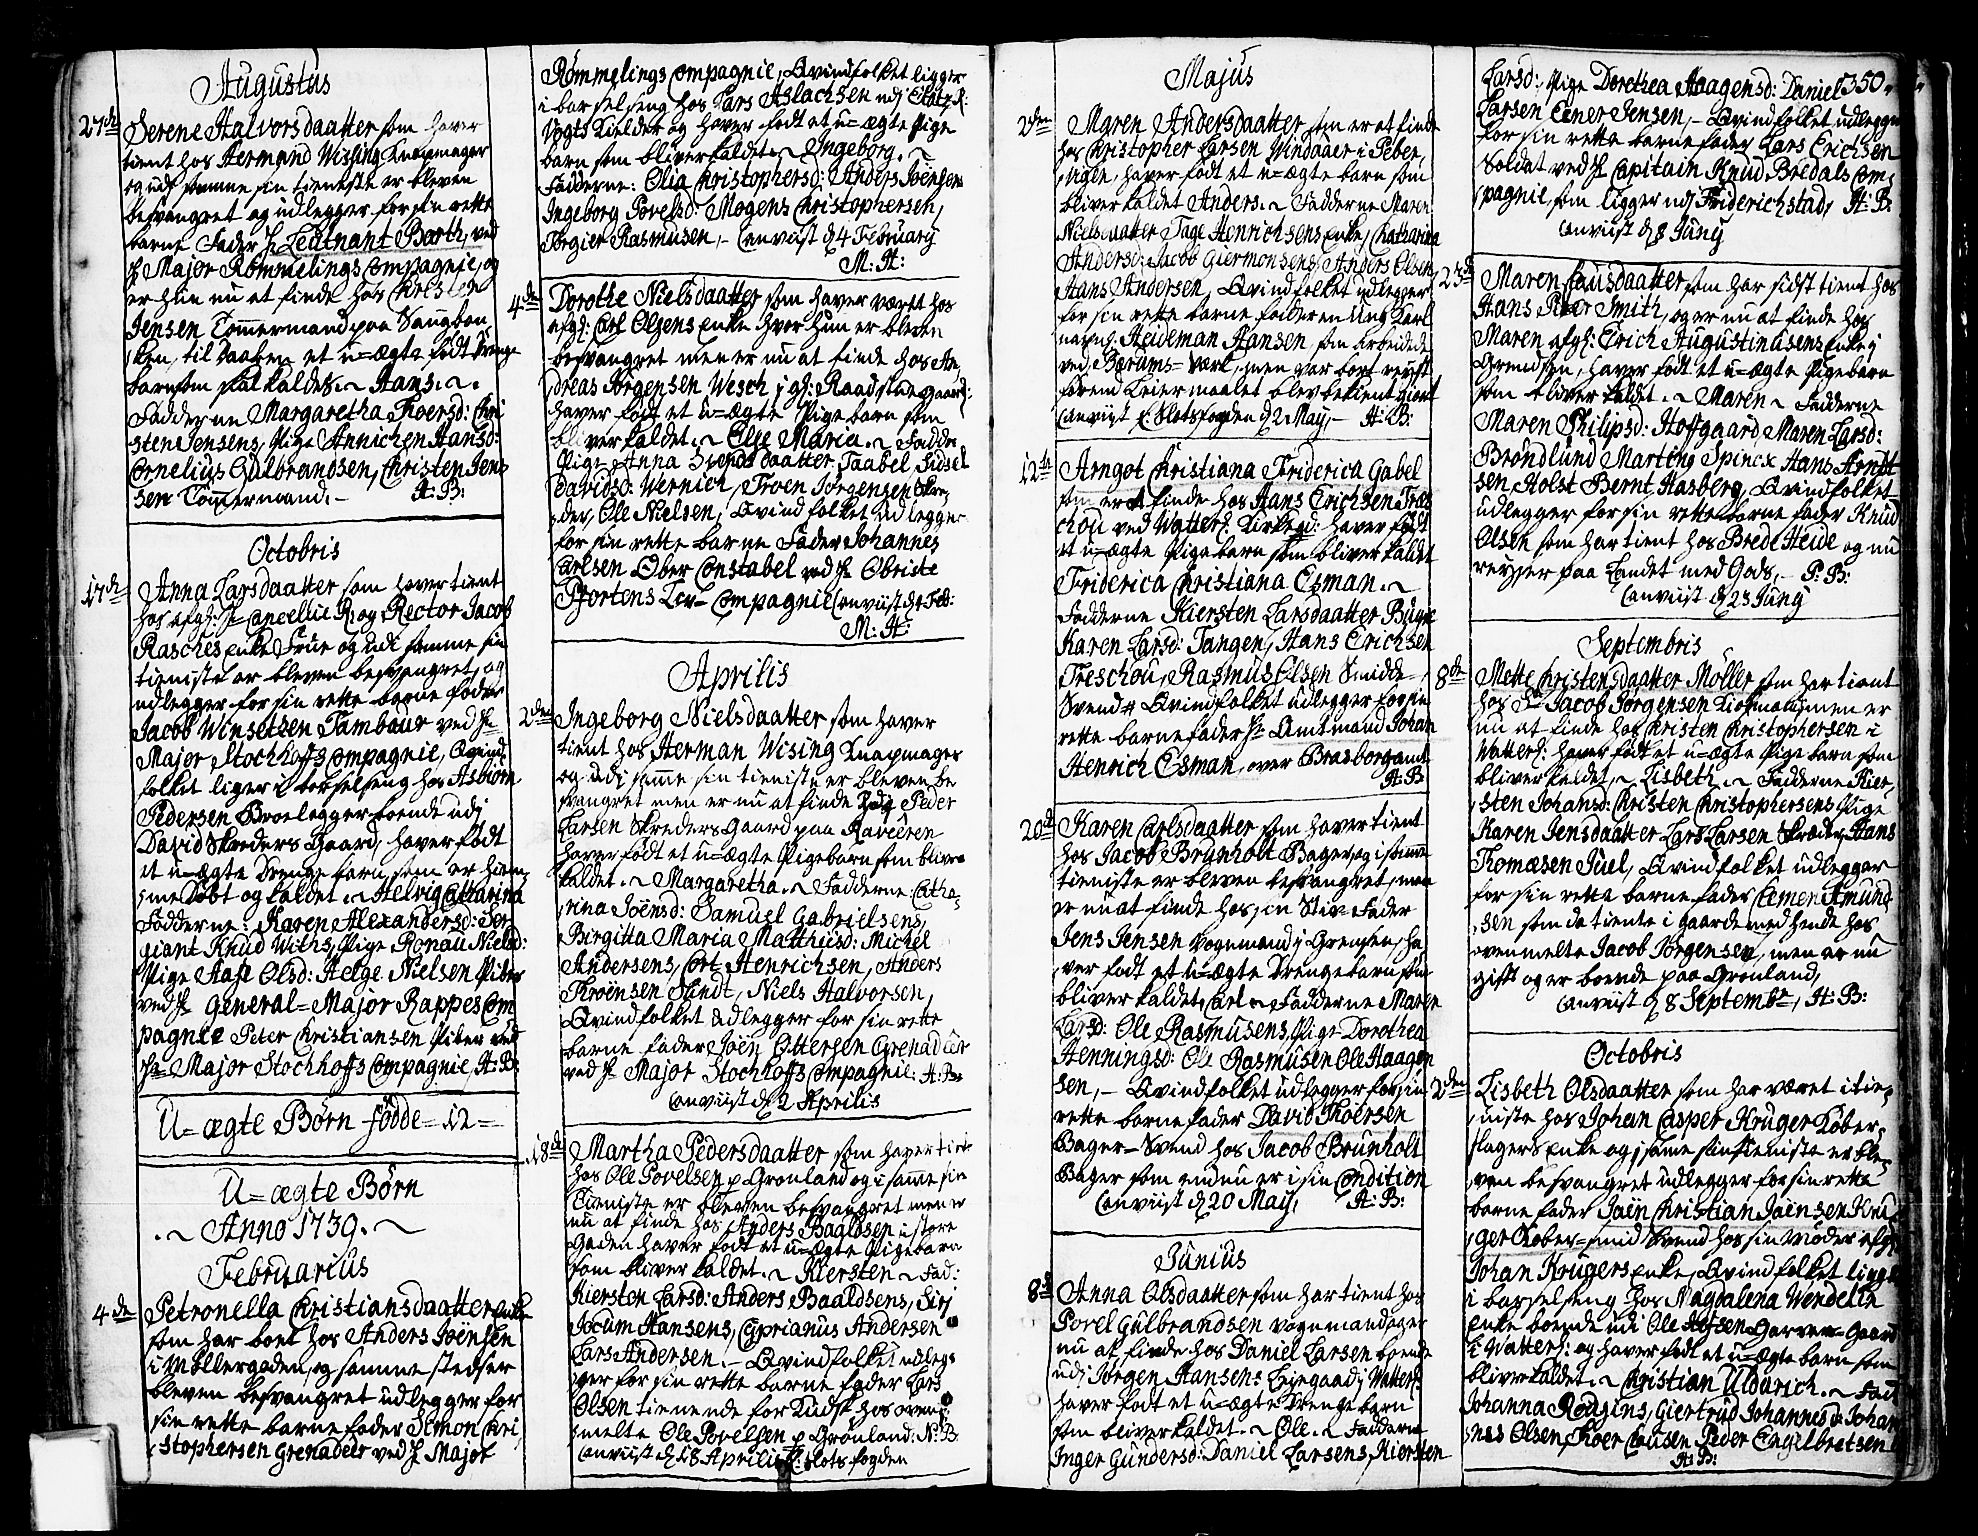 Augustus
27de Serene Halvorsdaatter som haver
tient hos Hermand Wissing Knapmager
og udj samme sin tieneste er bleven
besvangret og udlegger for sin rette
barne Fader Hr Leutnant Barth, ved
Hr Major Rømmelings Compagnie, og
er hun nu at finde hos Christen
Jensen Tømmermand paa Saugban,
ken, til daaben et u=ægte født drenge
barn som skal kaldes Hans.
Fadderne Margaretha Thoersd: Chri
sten Jensens, Pige Annichen Hansd:
Cornelius Gulbrandsen, Christen Jen
sen Tømmermand. H: B:
Octobris
17de Anna Larsdaatter som haver tient
hos afg: Hr Cancellie R: og Rector Jacob
Rasches Enke Frue og udi samme sin
tieniste er bleven besvangret, og
udlegger for sin rette barne fader
Jacob Winsetsen Tambour ved Hr
Major Stochhoffs Compagnie, Qvind
folket liger i barselseng hos Asbiørn
Pedersen Broelegger boende udj
David Skreders Gaard, haver født
et u=ægte Drenge barn, som er hiem,
me døbt og kaldet Helvig Catharina
Fadderne: Karen Alexandersd: Ser,
giant Knud Withs, Pige Ronau Nielsd:
Pige Aase Olsd: Helge Nielsen Piber
ved Hr General=Major Rappes Com
pagnie Peter Christiansen Piber ved
Hr Major Stochhoffs Compagnie, H: B:
U=ægte Børn fødde=12=
U=ægte Børn
Anno 1739.
Februarius
4de Petronella Christiansdaatter enke
som har boet hos Anders Joensen
i Møllergaden, og samme steds er
bleven besvangret udlegger for
sin rette barne fader Simon Chri,
stophersen Grenadeer ved Hr Major
Rømmelings Compagnie, Qvindfolket ligger
i barselseng hos Lars Aslachsen udj
Vogts Kielder og haver født et u=ægte Pige
barn som bliver kaldet Ingeborg.
Fadderne: Olia Christophersd: Anders Joensen
Ingeborg Povelsd: Mogens Christophersen,
Torgier Rasmusen, Anviist d. 4 February
M: H:
4de Dorothe Nielsdaatter som haver været hos
afg: Carl Olsens Enke hvor hun er bleven
besvangret men er nu at finde hos An,
dreas Jørgensen Wesch j gl: Raadstue Gaard:
haver født et u=ægte Pige barn som
bliver kaldet Else Maria. Fadder
Pige Anna Svends daatter Taabel, Sidsel
Davidsd: Wernich, Troen Jørgensen Skre,
der, Ole Nielsen, Qvindfolket udlegger
for sin rette barne Fader Johannes
Carlsen Ober Constabel ved Hr Obriste
Pfortens Compagnie Anviist d. 4 Feb:
M: H:
Aprilis
2den Ingeborg Nielsdaatter som haver
tient hos Herman Wising Knapmager
og udj samme sin tieniste er bleven be
svangret men er nu at finde hos Peder
Larsen Skreders Gaard paa Ravieren
haver født et u=ægte Pigebarn som bliver
kaldet. Margaretha. Fadderne: Catha,
rina Joënsd: Samuel Gabrielsens,
Birgitta Maria Mattheüsd: Michel
Andersens, Cort Henrichsen, Anders
Throënsen Slindt, Niels Halvorsen,
Qvindfolket udlegger for sin rette
barne fader Joën Ottersen Grenadeer
ved Hr Major Stochhoffs Compagnie: H: B:
Anviist d. 2 Aprilis
18de Martha Pedersdaatter som haver tient
hos Ole Povelsen p. Grønland og i samme sin
Tieniste er bleven besvangret men er
nu at finde hos Anders Baaldsen i store
Gaden haver født et u=ægte Pigebarn
som bliver kaldet Kiersten. Fad:
Kiersten Larsd: Anders Baaldsens, Siri
Jocum Hansens, Cyprianus Andersen
Lars Andersen. Qvindfolket udleg
ger for sin rette barne fader Lars
Olsen tienende for Kudsk hos oven,
melte Ole Povelsen p. Grønland: N: B:
Anviist d. 18 Aprilis Hr: Slotsfogden
Majus
2den Maren Andersdaatter som er at finde
hos Christopher Larsen Vindaaer i Peber,
vigen, haver født et u=ægte barn som
bliver kaldet Anders. Fadderne Maren
Nielsdaatter Tage Henrichsens Enke, Catharina
Andersd: Jacob Giermonsens, Anders Olsen,
Hans Andersen, Qvindfolket udlegger
for sin rette barne fader en Ung Karl
nafnl: Heideman Hansen som arbeidede
ved Bærums=Værk, men var bort reyst
førend Leiermaalet blev bekient giort
Anviist Hr Slotsfogden d. 2 May, H: B:
12te Arngot Christiana Friderica Gabel
som er at finde hos Hans Erichsen Tres
chou ved Watterl: Kirkegd: haver født
et u=ægte Pigebarn som bliver kaldet
Friderica Christiana Esman.
Fadderne Kiersten Larsdaatter Bügge
Karen Larsd: Tangen, Hans Erichsen
Treschou, Rasmus Olsen Smidde
Svend, Qvindfolket udlegger for sin
rette barnefader Hr Amtmand Johan
Henrich Esman, over Brasborg amt
H: B
20de Karen Carlsdaatter som haver tient
hos Jacob Brunholt Bager, og i samme
tieniste er bleven besvangret, men
er nu at finde hos sin Stiv Fader
Jens Jensen Vognmand j Grensen, ha
ver født et u=ægte Drengebarn som
bliver kaldet, Carl. Fadderne Maren
Larsd: Ole Rasmusens, Pige Dorothea
Henningsd: Ole Rasmusen Ole Haagen
sen, Qvindfolket udlegger for sin
rette barnefader David Thoersen
Bager=Svend hos Jacob Brunholt
Bager som endnu er i sin Condition
Anviist d. 20 May, H: B:
Junius
8de Anna Olsdaatter som har tient hos
Povel Gulbrandsen Vognmand, og er
nu at finde hos Daniel Larsen boende
udj Jørgen Hansens Leyegaard j Watterl:
haver født et u=ægte Drenge barn
som bliver kaldet. Ole. Fadderne
Inger Gundersd: Daniel Larsens, Kiersten
350.
Larsd:, Pige Dorothea Haagensd: Daniel
Larsen Einer Jensen, Qvindfolket udlegger
for sin rette barne fader Lars Erichsen
Soldat ved Hr Capitain Knud Bredals Com,
pagnie, som ligger udj Friderichstad, H: B:
Anviist d. 8 Juny
23de Maren Clausdaatter som har sidst tient hos
Hans Peter Smith, og er nu at finde hos
Maren afg: Erich Augustinusens Enke j
Grendsen, haver født et u=ægte Pigebarn
som bliver kaldet. Maren. Fadderne
Maren Philipsd: Hoffgaard, Maren Larsd:
Brøndlund Marting Spincx Hans Arndt
sen Holst Bernt Hasberg, Qvindfolket
udlegger for sin rette barne fader Knud
Olsen som har tient hos Bredl Heide og nu
reyser paa Landet med Gods. P: B:
Anviist d. 23 Juny
Septembris
8de Mette Christensdaatter Møller som har tient
hos Sr Jacob Jørgensen Kiøbmand men er
nu at finde hos Christen Christophersen i
Watterl: haver født et u=ægte Pige barn som
bliver kaldet, Lisbeth. Fadderne Kier,
sten Johansd: Christen Christophersens, Pige
Karen Jensdaatter Lars Larsen Skræder, Hans
Thomæsen Juel, Qvindfolket udlegger
for sin rette barne fader Clemen Amund
sen som da tiente i Gaarden med hende hos
ovenmelte Jacob Jørgensen, men er nu
gift og er boende paa Grønland,
Anviist d. 8 Septembr, H: B:
Octobris
2den Lisbeth Olsdaatter som har været i tie,
niste hos Johan Casper Kruger Kober,
slagers Enke og j same sin tieniste er ble,
ven besvangret udlegger for sin rette
barne fader Joën Christian Joënsen Krü
ger Kober=smid Svend hos sin Moder afg:
Johan Krugers Enke, Qvindfolket ligger
i barselseng hos Magdalena Wendelin
Enke boende udi Ole Garver=Gaard
i Watterl: og haver født et u=ægte barn som
bliver kaldet. Christian Uldarich. Fad
Johanna Rodgins, Giertrud Johannesd: Johan
nes Olsen, Thoer Clausen Peder Engilbretsen
H: B: